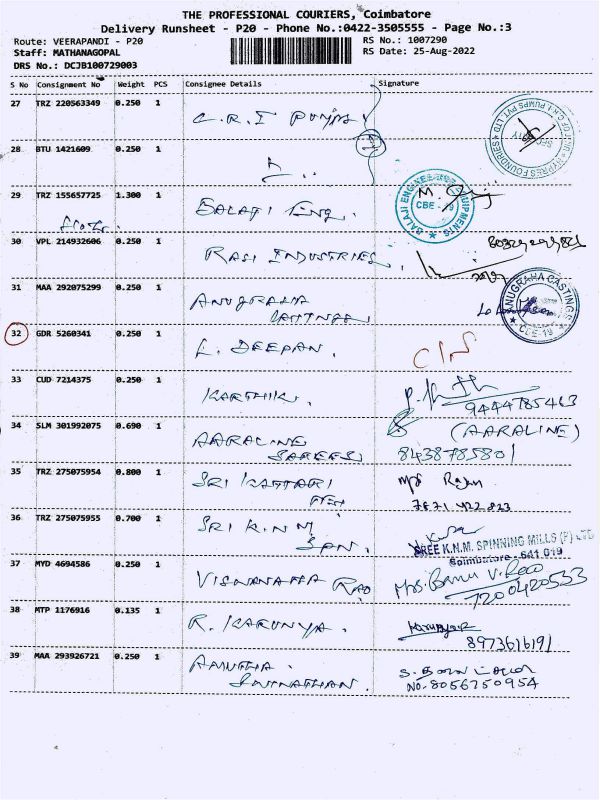 THE PROFESSIONAL COURIERS, Coimbatore
Delivery Runsheet - P20 - Phone No.:0422-3505555 - Page No.:3
Route: VEERAPANDI - P20
RS No.: 1007290
Staff: MATHANAGOPAL
RS Date: 25-Aug-2022
DRS No.: DCJB100729003
S No Consignment No Weight PCS Consignee Details Signature
27 TRZ 220563349 0.250 1
C.R.I PUMPS
28 BTU 1421609 0.250 1
29 TRZ 155657725 1.300 1
BALAJI Eng.
BALAJI ENGINEERING EQUIPMENTS
CBE - 19
30 VPL 214932606 0.250 1
RASI INDUSTRIES.
31 MAA 292075299 0.250 1
ANUGRAHA
CASTINGS
ANUGRAHA CASTINGS
CBE-19
32 GDR 5260341 0.250 1
L. DEEPAN.
33 CUD 7214375 0.250 1
KARTHIK.
9444785463
34 SLM 301992075 0.690 1
AARALINE
SAREES
(AARALINE)
8438785801
35 TRZ 275075954 0.800 1
SRI
7871 422 823
36 TRZ 275075955 0.700 1
SRI K.N.M
SPN.
SREE K.N.M. SPINNING MILLS (P) LTD
Coimbatore - 641 019
37 MYD 4694586 0.250 1
VISWANATHA RAO
7200420533
38 MTP 1176916 0.135 1
R. KARUNYA.
8973616191
39 MAA 293926721 0.250 1
AMUTHA
SWINATHAN.
NO. 8056750954